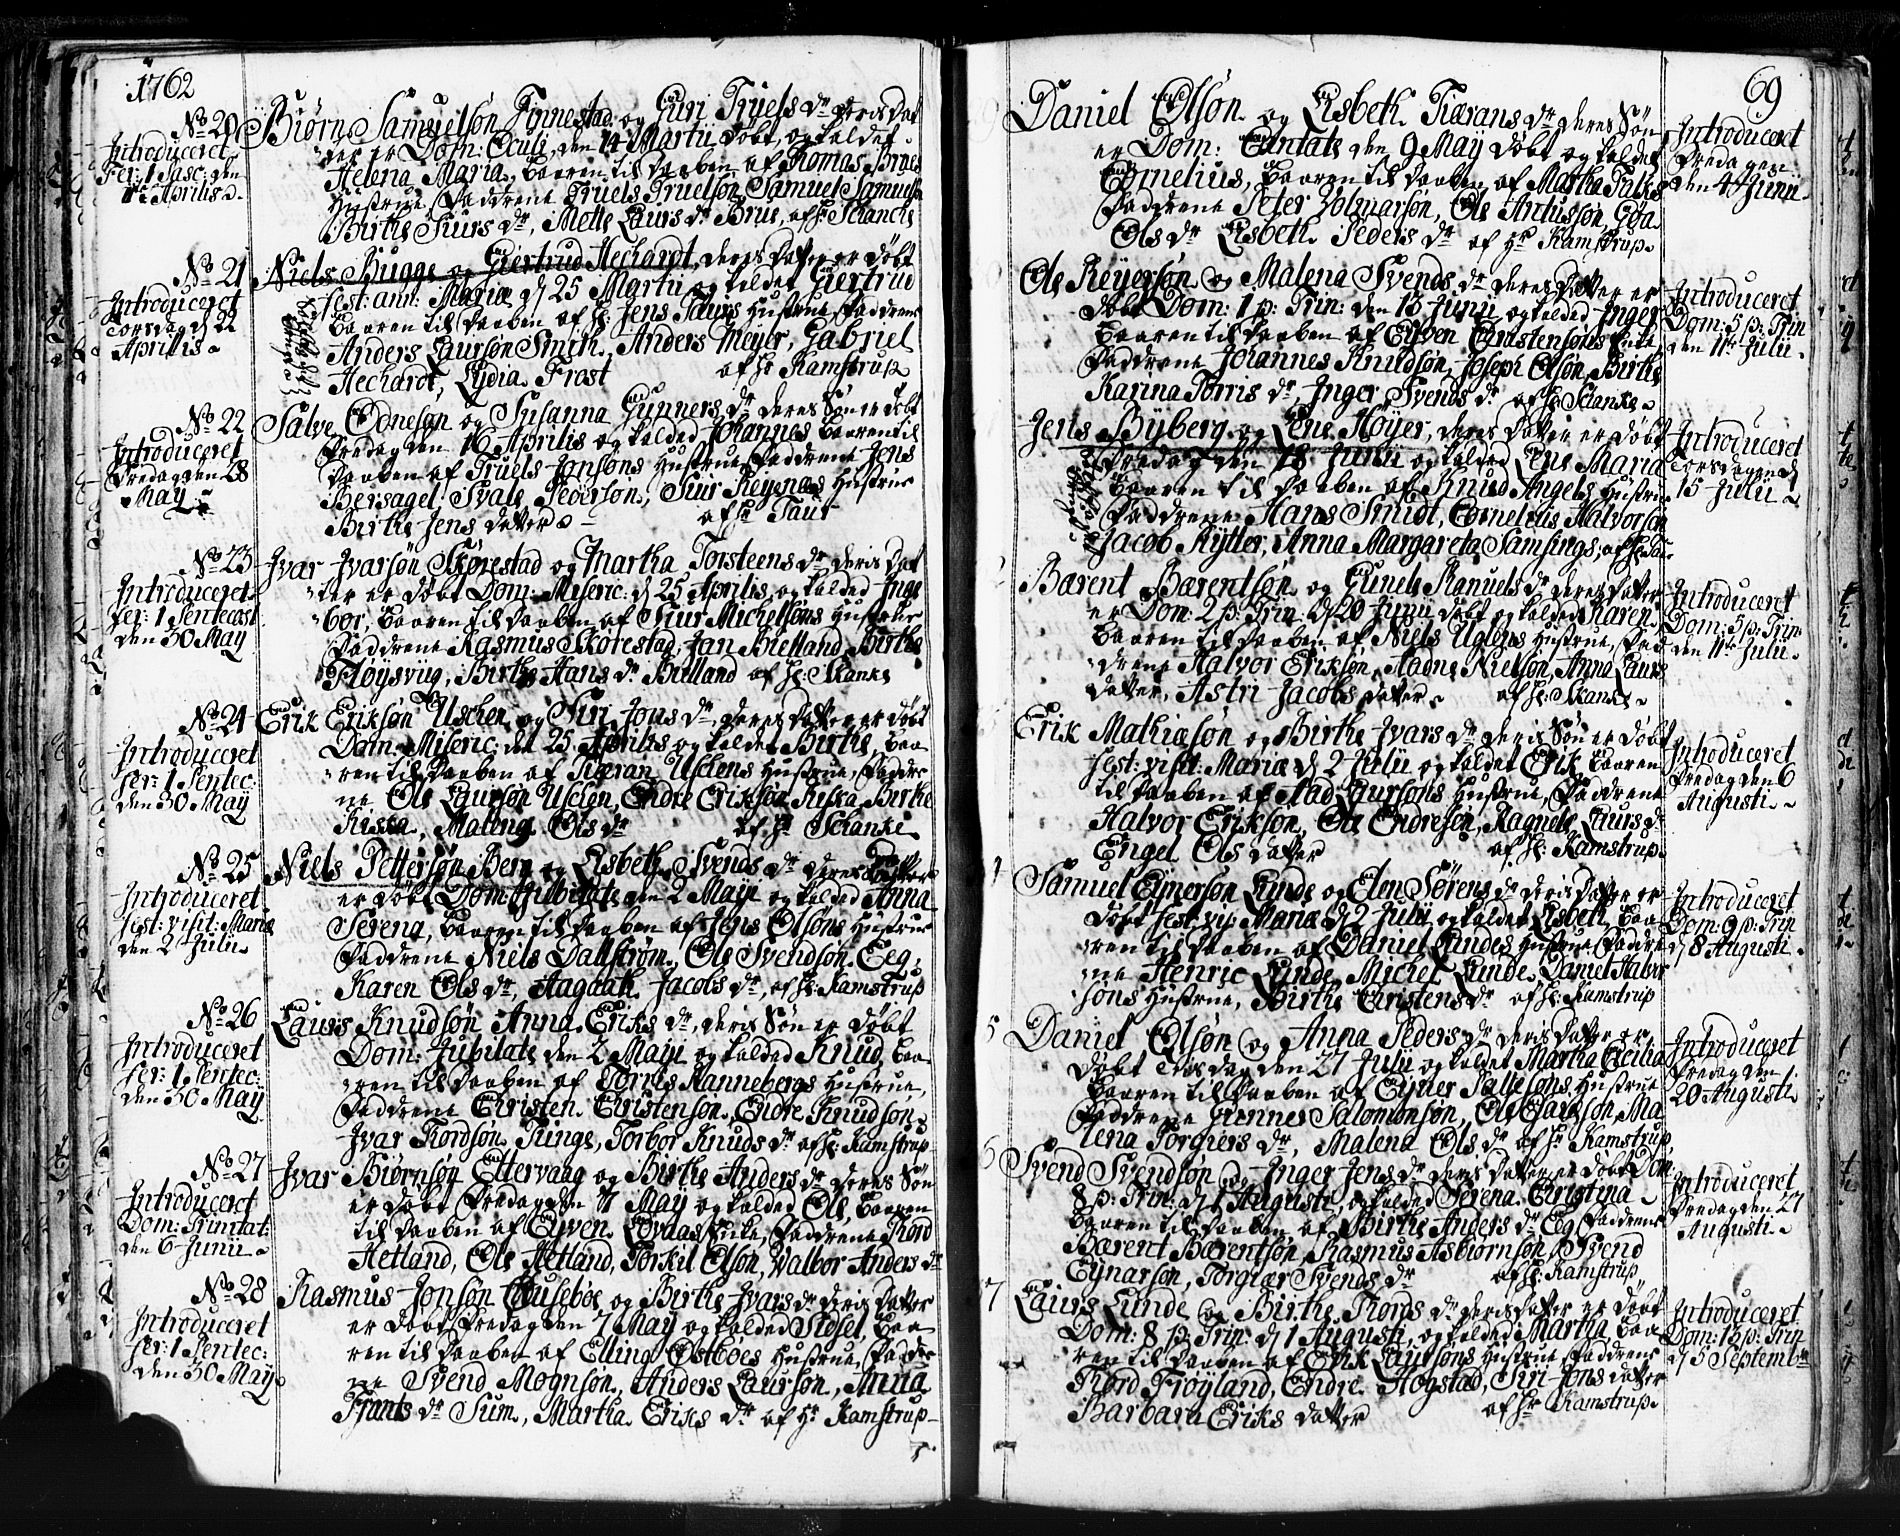 1762
No 20
Introduceret
Fer: 1 Pasc: den
Aprilis
Biørn Samuelsøn Finnestad og Giri Truels dr deris Dat
ter er Dom: Oculi, den 14 Martii Døbt, og kaldet
Helena Maria, baaren til Daaben af Thomas
Hustrue, Faddrene Truels Truelsøn, Samuel Samuels
Birthe Siurs dr, Mette Laurs dr Brue, af Hr Schancke
No 21
Introduceret
Torsdag d 22
Aprilis
Niels Bugge og Giertrud Hechardt, deres Datter er døbt
Fest: ann: Mariæ d 25 Martii og kaldet Giertrud
baaren til Daaben af Hr Jens Taurs Hustrue, Faddrene
Anders Laursøn Smith, Anders Meyer, Gabriel
Hechardt, Lydia Frost af Hr Kamstrup
No 22
Introduceret
Fredag den 28
May
Salve Odnesøn og Susanna Gunners dr deres Søn er døbt
Fredag den 16 Aprilis og kalded Johannes baaren til
Daaben af Truels Jonsøns Hustrue, Faddrene Jens
Bersagel, Svale Pedersøn, Siur Hustrue
Birthe Jens datter af Hr Taur
No 23
Introduceret
Fer: 1 Pentecost
den 30 May
Ivar Ivarsøn Skorestad og Martha Torsteens dr deris Dat
ter er døbt Dom: Miseric: d 25 Aprilis, og kaldet Inge
bor, baaren til Daaben af Siur Michelsøns Hustrue
Faddrene Rasmus Skorestad, Jan Bielland, Birthe
Fløysviig, Birthe Hans dr Bielland af Hr: Skanke
No 24
Introduceret
Fer: 1 Pentec:
den 30 May
Erik Eriksøn Uschen og Siri Jons dr, deres Datter er døbt
Dom: Miseric: den 25 Aprilis og kaldet Birthe, baa
ren til Daaben af Tiæran Uschens Hustrue, Faddre
ne Ole Laursøn Uschen, Endre Eriksøn Riska, Birthe
Riska, Malena Ols dr af Hr Schanke
No 25
Introduceret
Fest: visit: Mariæ
den 2 Julii
Niels Pettersøn Berg og Lisbeth Svends dr deres Datter
er døbt Dom: Jubilate den 2 Maji og kaldet Anna
Serena, baaren til Daaben af Jens Olsøns Hustrue
Faddrene Niels Dallstrøm, Ole Svendsøn Eeg,
Karen Ols dr, Aagaath Jacobs dr, af Hr: Kamstrup
No 26
Introduceret
Fer: 1 Pentec:
den 30 May
Laurs Knudsøn Anna Eriks dr, deris Søn er døbt
Dom: Jubilate den 2 Maji og kalded Knud, baa
ren til Daaben af Torris Hannebergs Hustrue,
Faddrene Christen Christensøn, Endre Knudsøn,
Ivar Thordsøn, Tinge, Torbor Knuds dr af Hr: Kamstrup
No 27
Introduceret
Dom: Trinitat:
den 6 Junii
Ivar Biørnsøn Ettervaag og Birthe Anders dr deres Søn
er døbt Fredag den 7 May og kaldet Ole, baaren
til Daaben af Eyven Lovdaas Pike, Faddrene Thord
Hetland, Ole Hetland, Torkil Olsøn, Valbor Anders dr
No 28
Introduceret
Fer: 1 Pentec:
den 30 May
Rasmus Jonsøn Husebøe og Birthe Ivars dr deris Datter
er døbt Fredag den 7 May og kaldet Sidsel, baa
ren til Daaben af Elling Østboes Hustrue, Faddre
ne Svend Mognsøn, Anders Laursøn, Anna
Frants dr Sum, Martha Eriks dr af Hr Kamstrup
69
Daniel Olsøn og Lisbeth Tiærans dr deres Søn
er Dom: Cantate den 9 May døbt og kaldet
Cornelius, baaren til Daaben af Martha Falks
Faddrene Peter Volmarsøn, Ole Antussøn,
Ols dr Lisbeth Peders dr af Hr Kamstrup
Introduceret
Fredagen
den 4 Junii
Ole Reyersøn og Malena Svends dr deres Datter er
døbt Dom: 1 p: Trin: den 13 Junii og kaldet Inger
baaren til Daaben af Eyven Christensøns Pike,
Faddrene Johannes Knudsøn, Joseph Olsøn, Birthe
Karina Torris dr, Inger Svends dr af Hr Schanke
Introduceret
Dom: 5 p: Trin
den 11te Julii
Jens Byberg og Lene Høyer, deres Datter er døbt
Fredag den 18 Junii og kaldet Lene Maria
baaren til Daaben af Knud Angels Hustrue
Faddrene Hans Smidt, Cornelius Halvorsøn
Jacob Rytter, Anna Margareta Samsings, af Hr
Introduceret
Torsdagen d
15 Julii
Bærent Bærentsøn og Gunele Ranuels dr deres Datter
er Dom: 2 p: Trin: d 20 Junii døbt og kaldet Karen
baaren til Daaben af Niels Hustrue, Fad
drene Halvor Eriksøn, Aadne Nielsøn, Anna Laurs
datter, Astri Jacobs datter af Hr: Skanke
Introduceret
Dom: 5 p: Trin
den 11te Julii
Erik Mathiæsøn og Birthe Ivars dr deris Søn er døbt
Fest: visit: Mariæ d 2 Julii og kaldet Erik baaren
til Daaben af Laursøns Hustrue, Faddrene
Halvor Eriksøn, Ole Endresøn, Ragnele Laurs dr
Engel Ols datter af Hr: Kamstrup
Introduceret
Fredag den 6
Augusti
Samuel Ejnersøn Lunde og Elen Sørens dr deris Datter er
døbt Fest: vis: Mariæ d 2 Julii og kaldet Lisbeth, baa
ren til Daaben af Daniel Lundes Hustrue, Faddre
ne Henric Lunde, Michel Lunde, Daniel Halvor
søns Hustrue, Birthe Christens dr af Hr: Kamstrup
Introduceret
Dom: 9 p: Trin
d 8 Augusti
5 Daniel Olsøn og Anna Peders dr deris Datter er
døbt Tirsdag den 27 Julii og kaldet Martha Cicilia
baaren til Daaben af Eyner Hustrue
Faddrene Hennes Salomonsøn, Ole Ma
lena Torgiers dr, Malena Ols dr af Hr Kamstrup
Introduceret
Fredag den
20 Augusti
6 Svend Svendsøn og Inger Jens dr deris Datter er døbt Dom
8 p: Trin: d 1 Augusti, og kaldet Serena Christina
baaren til Daaben af Birthe Anders dr Eeg, Faddrene
Bærent Bærentsøn, Rasmus Asbiørnsøn, Svend
Eynarsøn, Torgiær Svends dr af Hr: Kamstrup
Introduceret
Fredag den 27
Augusti
7 Laurs Lunde og Birthe Thords dr deris Datter er døbt
Dom: 8 p: Trin: d 1 Augusti, og kaldet Martha, baa
ren til Daaben af Erik Laursøns Hustrue, Faddrene
Thord Frøyland, Endre Hogstad, Siri Jons datter
Barbara Eriks datter af Hr Kamstrup
Introduceret
Dom: 13 p: Trin
d 5 Septembr